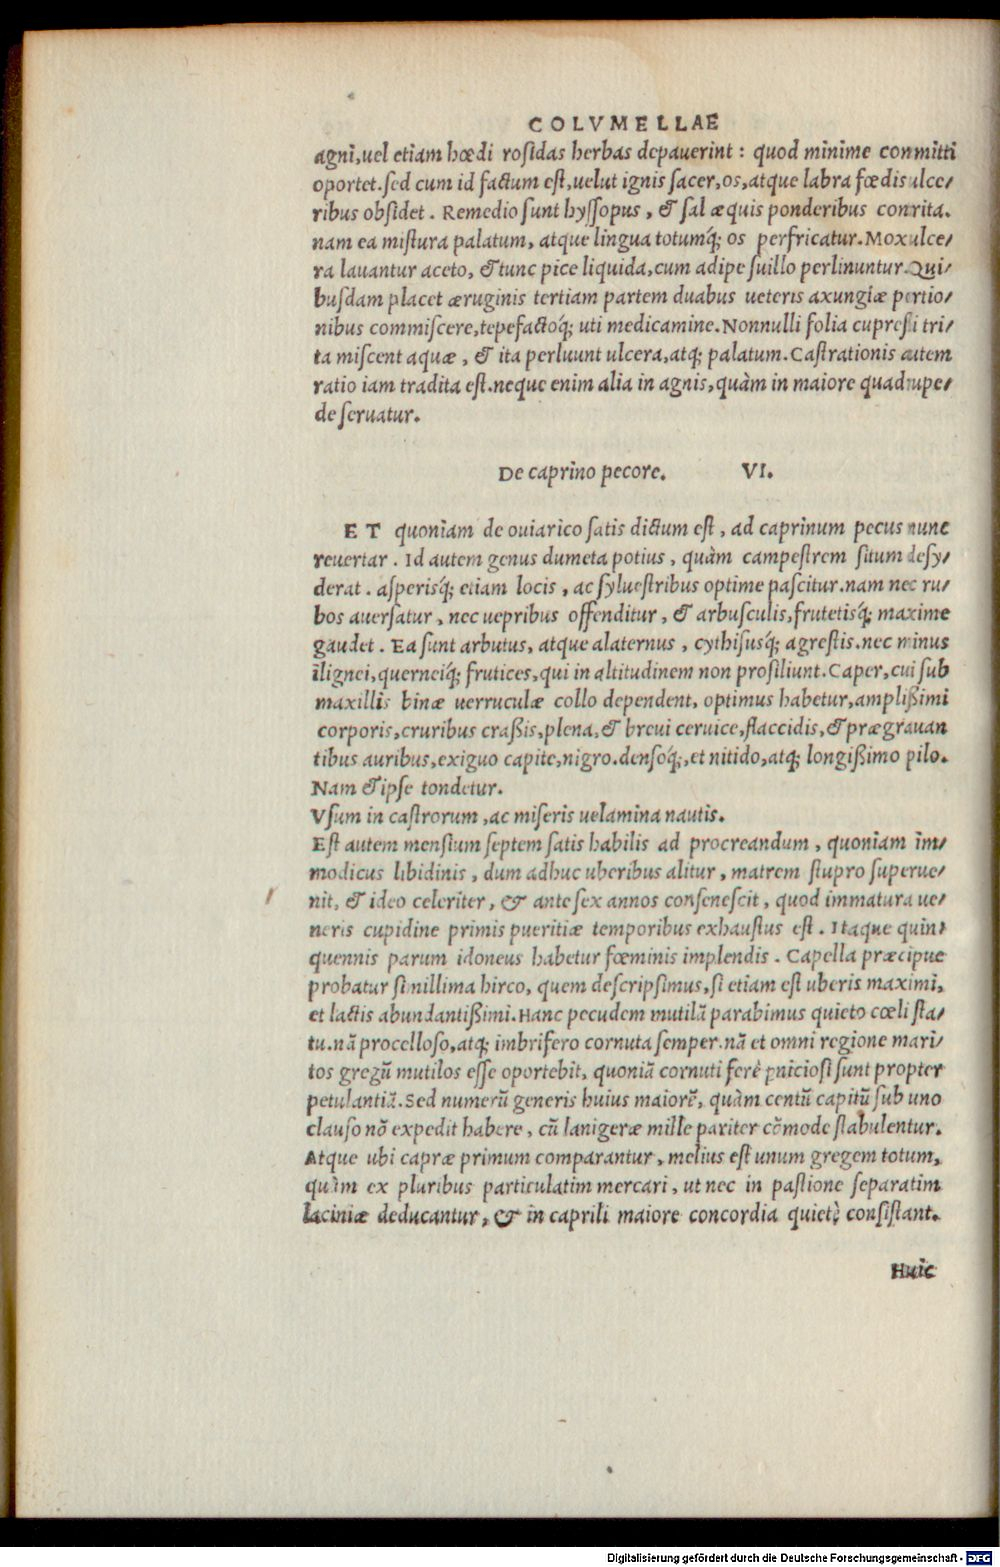 COLVMELLAE
agni,uel etiam hœdi rosidas herbas depauerint : quod minime committi
oportet.sed cum id factum est,uelut ignis sacer,os,atque labra fœdis ulce/
ribus obsidet . Remedio sunt hyssopus , & sal æquis ponderibus contrita.
nam ea mistura palatum, atque lingua totumq́; os perfricatur.Mox ulce/
ra lauantur aceto, & tunc pice liquida,cum adipe suillo perlinuntur.Qui/
busdam placet æruginis tertiam partem duabus ueteris axungiæ portio/
nibus commiscere,tepefactoq́; uti medicamine.Nonnulli folia cupressi tri/
ta miscent aquæ , & ita perluunt ulcera,atq; palatum.Castrationis autem
ratio iam tradita est.neque enim alia in agnis,quàm in maiore quadrupe/
de seruatur.
De caprino pecore. VI.
ET quoniam de ouiarico satis dictum est , ad caprinum pecus nunc
reuertar . Id autem genus dumeta potius , quàm campestrem situm desy/
derat . asperisq́; etiam locis , ac syluestribus optime pascitur.nam nec ru/
bos auersatur , nec uepribus offenditur , & arbusculis,frutetisq́; maxime
gaudet . Ea sunt arbutus, atque alaternus , cythisusq́; agrestis.nec minus
ilignei,querneiq́; frutices,qui in altitudinem non prosiliunt.Caper,cui sub
maxillis binæ uerruculæ collo dependent, optimus habetur,amplißimi
corporis,cruribus craßis,plena,& breui ceruice,flaccidis,& prægrauan
tibus auribus,exiguo capite,nigro.densoq́;,et nitido,atq; longißimo pilo.
Nam & ipse tondetur.
Vsum in castrorum ,ac miseris uelamina nautis.
Est autem mensium septem satis habilis ad procreandum , quoniam im/
modicus libidinis , dum adhuc uberibus alitur , matrem stupro superue/
nit, & ideo celeriter , & ante sex annos consenescit , quod immatura ue/
neris cupidine primis pueritiæ temporibus exhaustus est . Itaque quin/
quennis parum idoneus habetur fœminis implendis . Capella præcipue
probatur simillima hirco, quem descripsimus,si etiam est uberis maximi,
et lactis abundantißimi.Hanc pecudem mutilã parabimus quieto cœli sta/
tu.nã procelloso,atq; imbrifero cornuta semper.nã et omni regione mari/
tos gregũ mutilos esse oportebit, quoniã cornuti ferè ꝑniciosi sunt propter
petulantiã.Sed numerũ generis huius maiorẽ, quàm centũ capitũ sub uno
clauso nõ expedit habere , cũ lanigeræ mille pariter cõmode stabulentur.
Atque ubi capræ primum comparantur , melius est unum gregem totum,
quàm ex pluribus particulatim mercari , ut nec in pastione separatim
laciniæ deducantur , & in caprili maiore concordia quietę consistant.
Huic
Digitalisierung gefördert durch die Deutsche Forschungsgemeinschaft - DFG